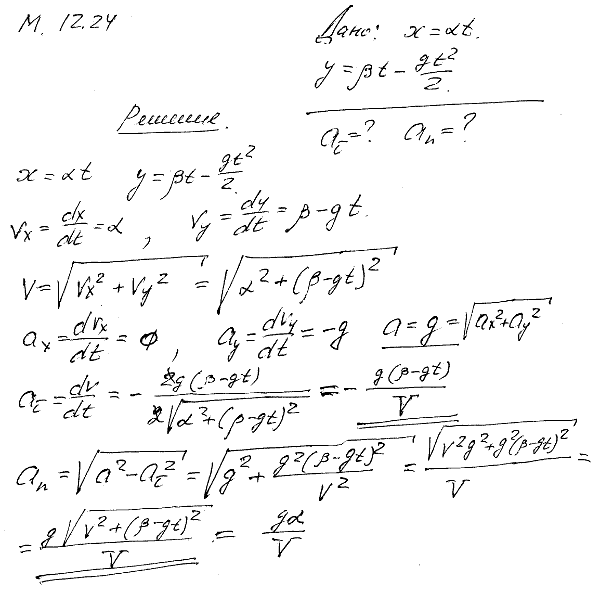 М. 12.24
Дано: x = αt.
y = βt − gt²/2.
aτ = ? an = ?
Решение.
x = αt y = βt − gt²/2.
Vx = dx/dt = α , Vy = dy/dt = β − gt.
V = √(Vx² + Vy²) = √(α² + (β − gt)²)
ax = dVx/dt = 0 , ay = dVy/dt = −g a = g = √(ax² + ay²)
aτ = dv/dt = − 2g(β − gt)/(2√(α² + (β − gt)²)) = − g(β − gt)/V
an = √(a² − aτ²) = √(g² + g²(β − gt)²/V²) = √(V²g² + g²(β − gt)²)/V =
= g√(V² + (β − gt)²)/V = gα/V